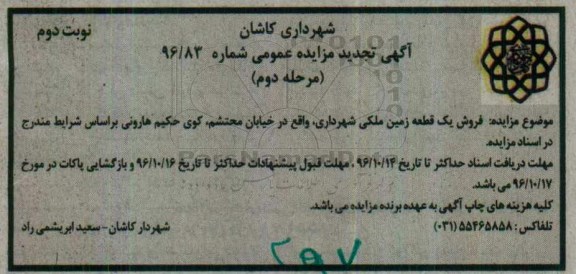 شهرداری کاشان
نوبت دوم
آگهی تجدید مزایده عمومی شماره ۹۶/۸۳
(مرحله دوم)
موضوع مزایده: فروش یک قطعه زمین ملکی شهرداری، واقع در خیابان محتشم، کوی حکیم هارونی براساس شرایط مندرج
در اسناد مزایده.
مهلت دریافت اسناد حداکثر تا تاریخ ۹۶/۱۰/۱۴ ، مهلت قبول پیشنهادات حداکثر تا تاریخ ۹۶/۱۰/۱۶ و بازگشایی پاکات در مورخ
۹۶/۱۰/۱۷ می باشد.
کلیه هزینه های چاپ آگهی به عهده برنده مزایده می باشد.
تلفاکس: ۵۵۴۶۵۸۵۸ (۰۳۱)
شهردار کاشان-سعید ابریشمی راد
۲۹۷